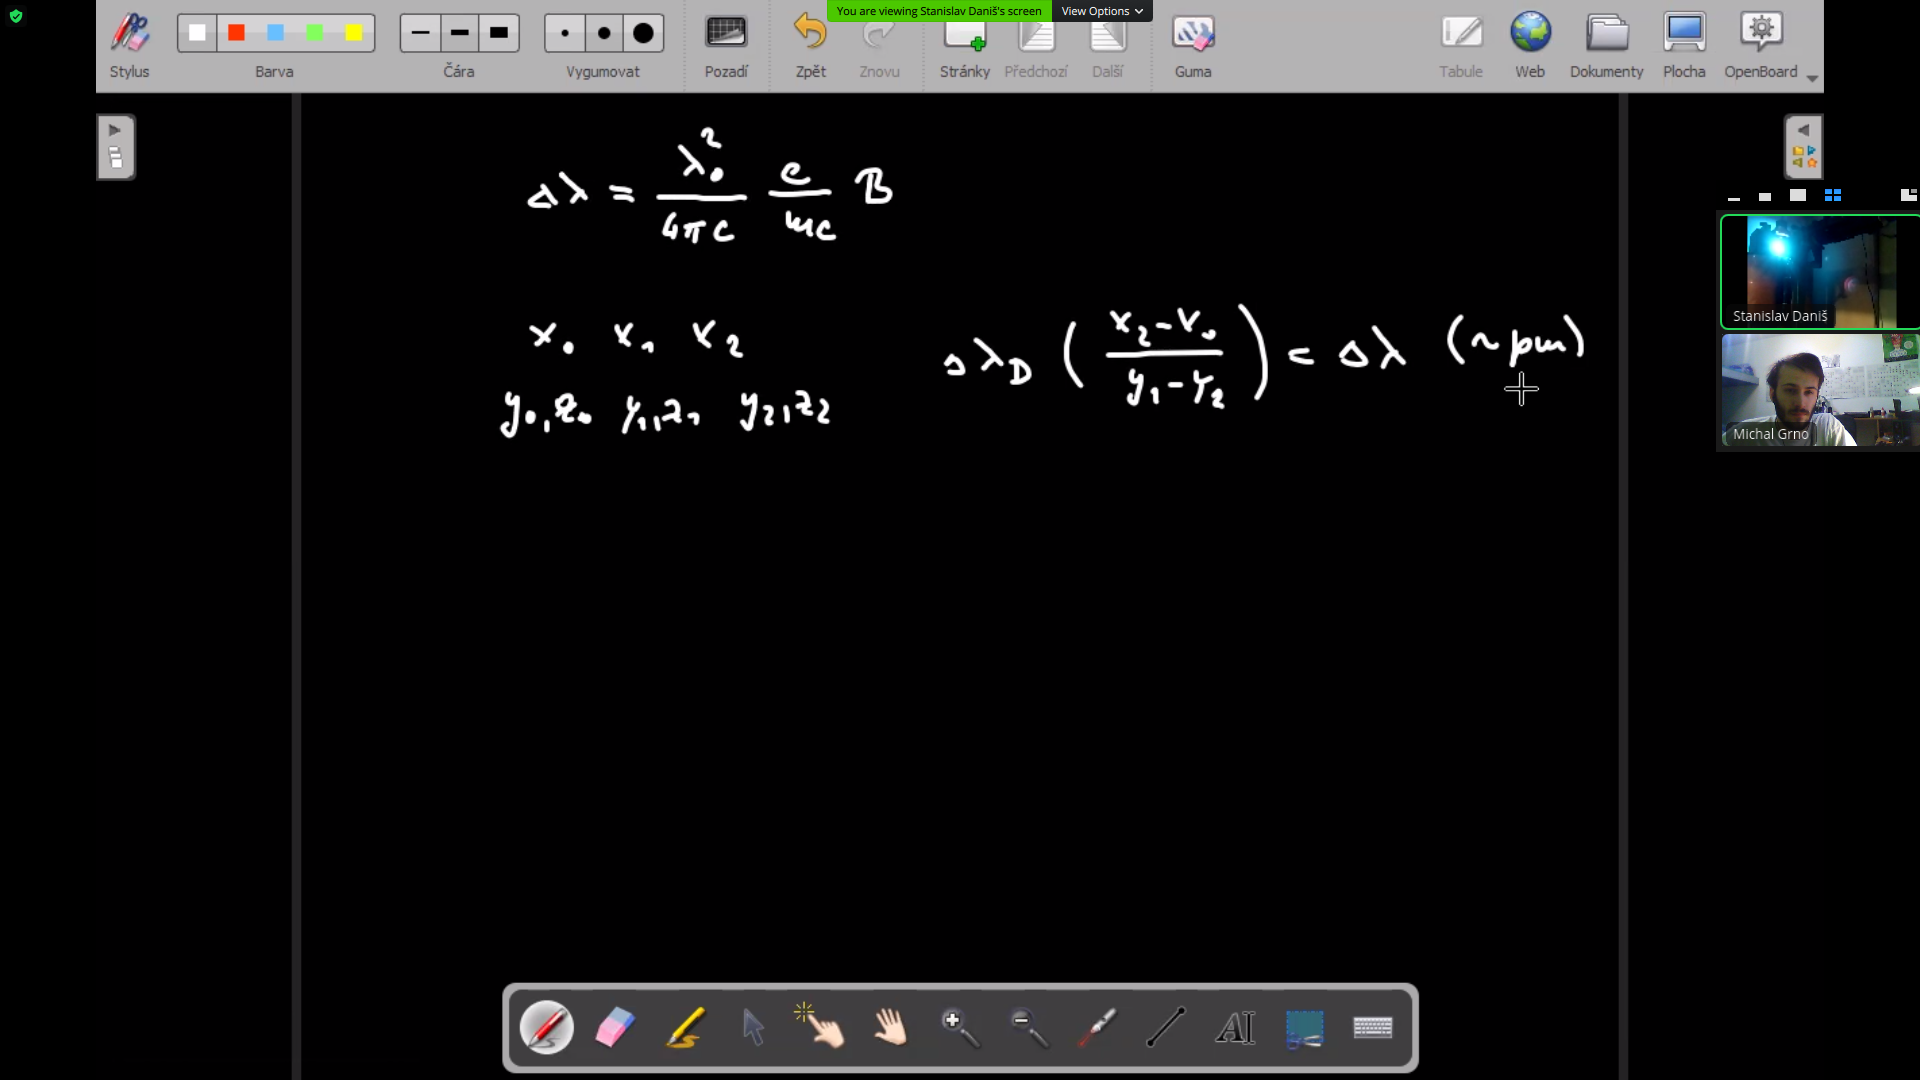 You are viewing Stanislav Daniš's screen View Options
Stylus Barva Čára Vygumovat Pozadí Zpět Znovu Stránky Předchozí Další Guma Tabule Web Dokumenty Plocha OpenBoard
Δλ = λ₀² / 4πc e / mc B
x₀ x₁ x₂
y₀, z₀ y₁, z₁ y₂, z₂
Δλ_D ( x₂ - x₀ / y₁ - y₂ ) = Δλ (~ pm)
Stanislav Daniš
Michal Grno
AI